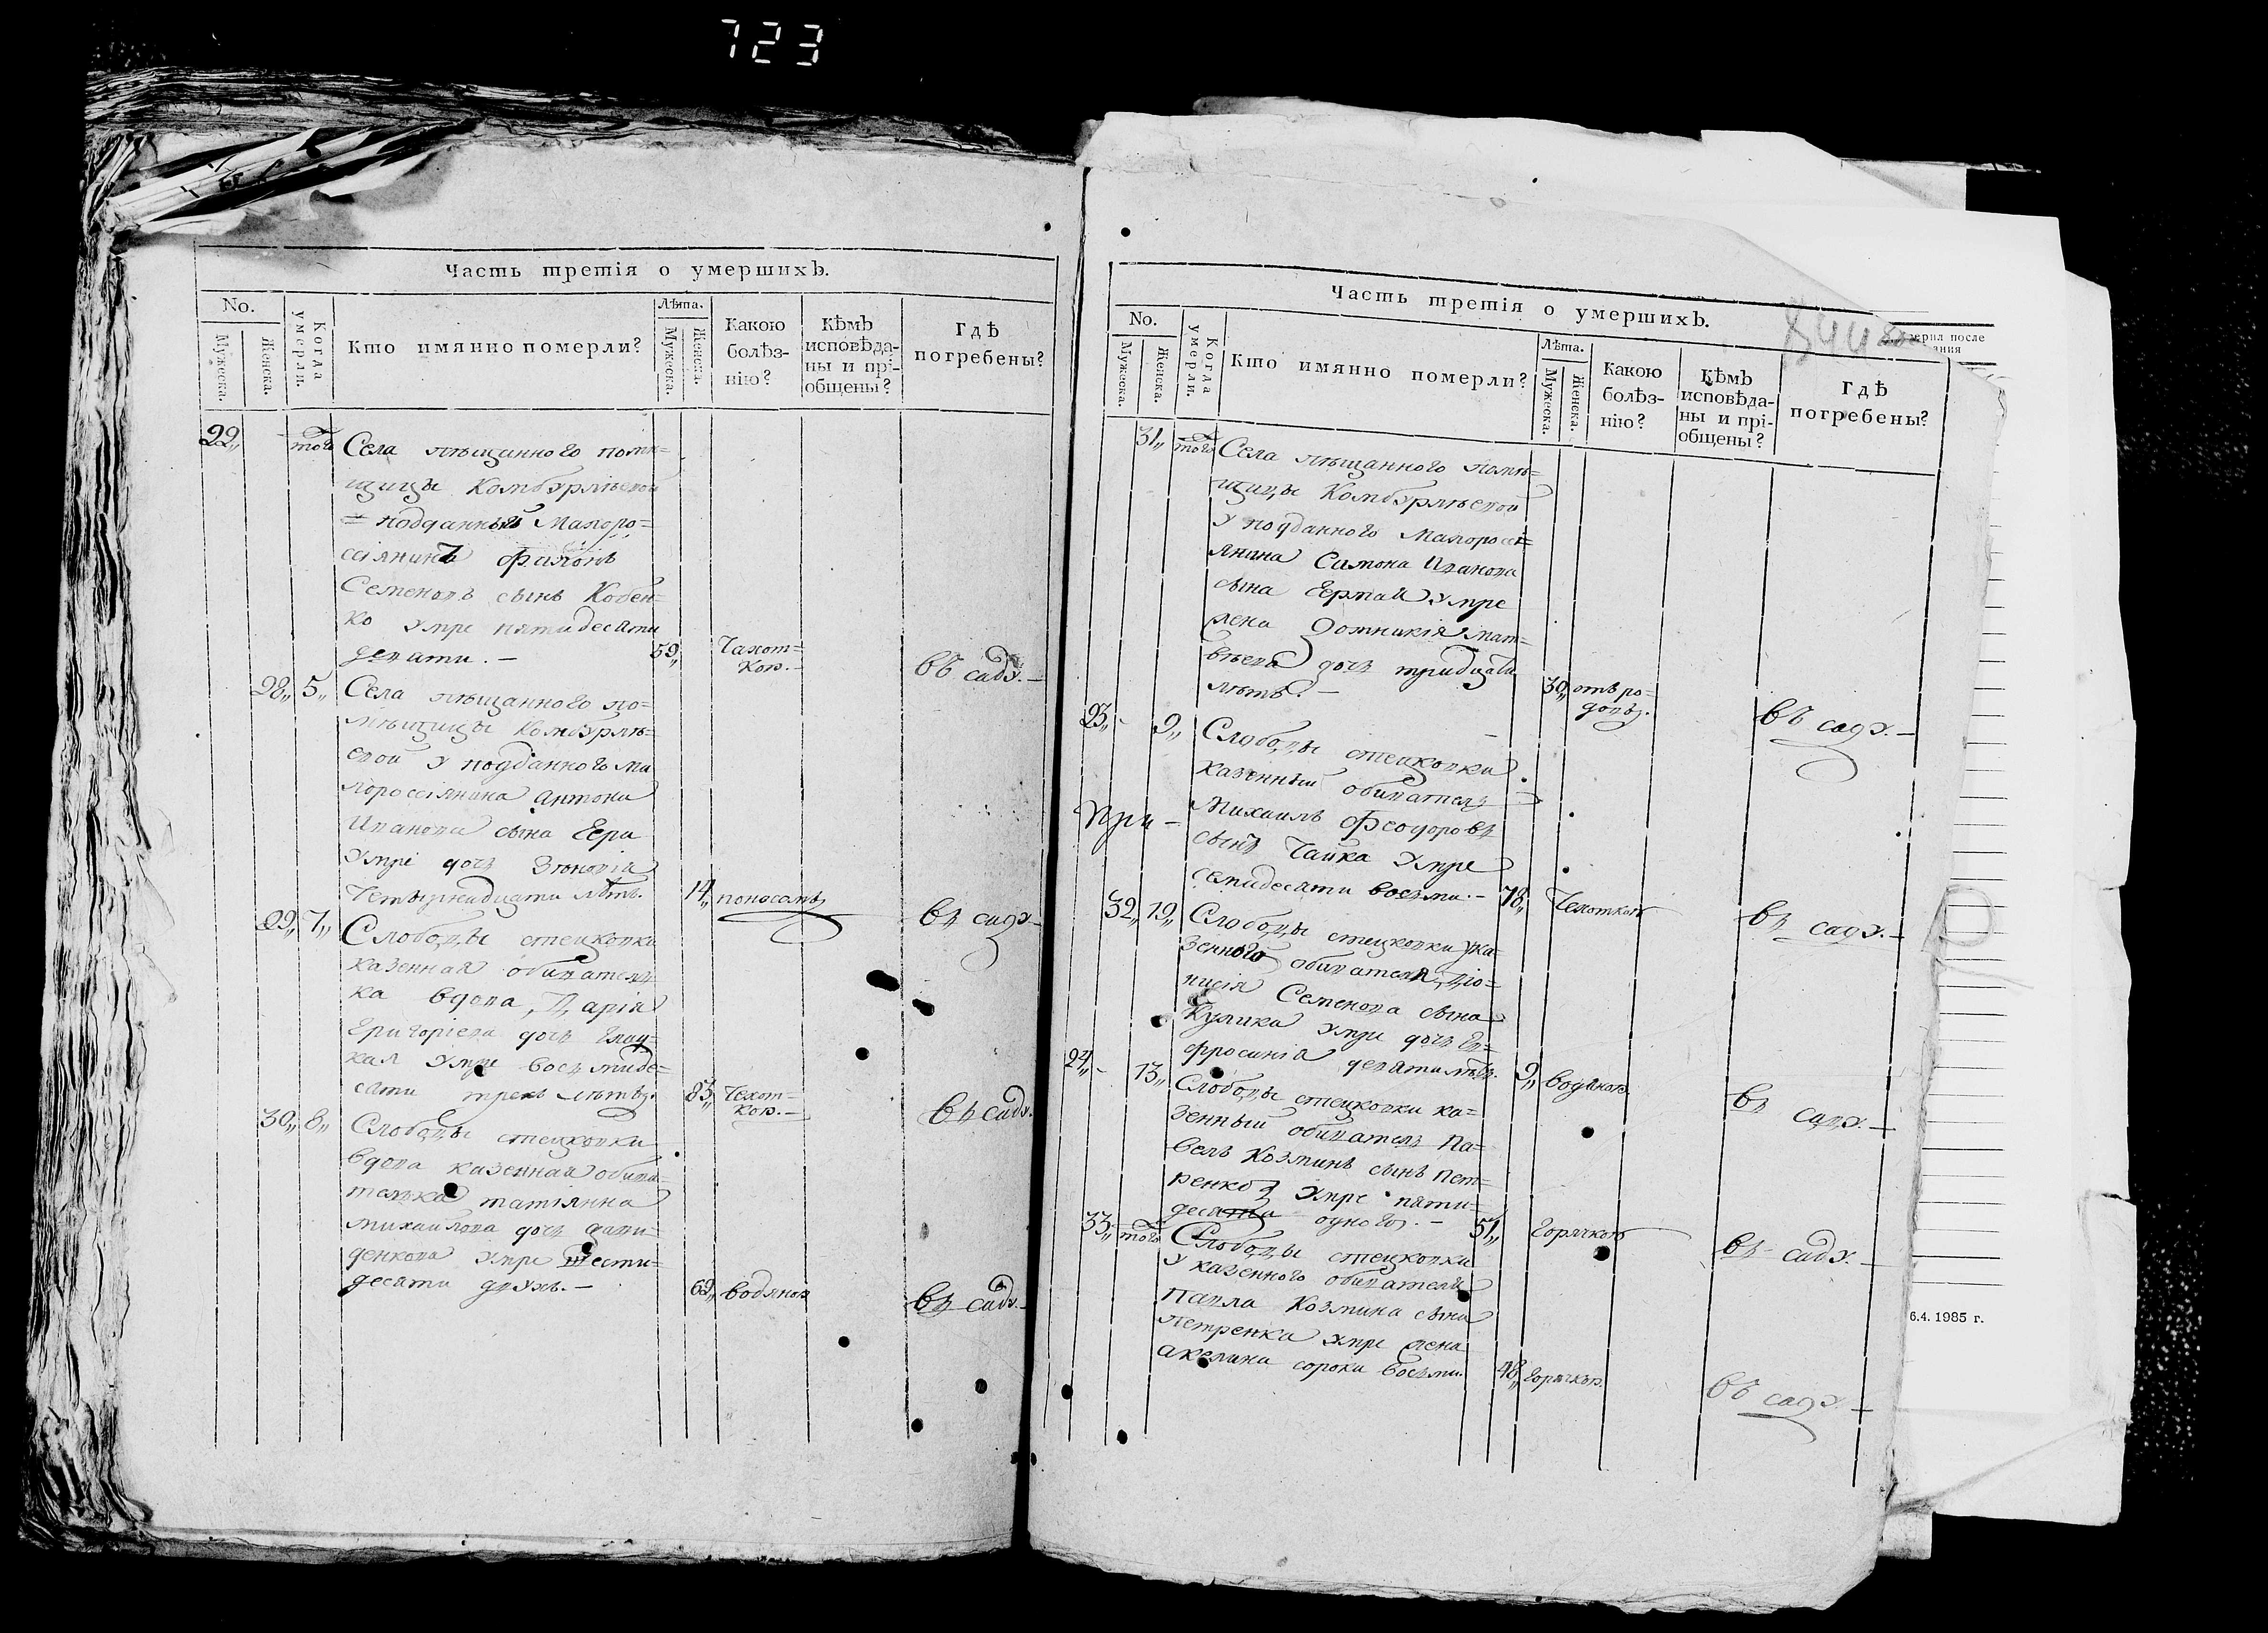 723
Часть третія о умершихъ.
No. Лѣта.
Мужеска. Женска. Когда умерли. Кто имянно померли? Мужеска. Женска. Какою болѣз-нію? Кѣмъ исповѣда-ны и прі-общены? Гдѣ погребены?
22 того Села пѣщанного помѣ=
щицы Комбурлѣевой
подданный Малоро=
ссіянинъ
Семеновъ сынъ Кобен=
ко умре пятидесяти
девяти. — 59 Чахот=
кою. — въ саду. —
28 5 Села пѣщанного по=
мѣщицы Комбурлѣ=
евой у подданного ма
лороссіянина Антона
Иванова сына Гера
умре дочь Зиновія
четырнадцати лѣтъ. 14 поносомъ въ саду —
29 7 Слободы стецковки
казенная обивателъ
ка вдова Дарія
Григоріева дочь Глад=
кая умре восмиде=
сяти трехъ лѣтъ. 83 Чехот=
кою. — въ саду.
30 8 Слободы стецковки
вдова казенная обива=
телка татіянна
михайлова дочь
денкова умре шести=
десяти двухъ. — 62 водяною въ саду. —
Часть третія о умершихъ.
No. Лѣта.
Мужеска. Женска. Когда умерли. Кто имянно померли? Мужеска. Женска. Какою болѣз-нію? Кѣмъ исповѣда-ны и прі-общены? Гдѣ погребены?
31 того Села пѣщанного помѣ=
щицы Комбурлѣевой
у подданного малороссі=
янина Симона Иванова
сына умре
жена Фотинія мат=
вѣева дочь тридцати
лѣтъ. — 30 отъ ро=
довъ. въ саду. —
23 9 Слободы стецковки
казенный обиватель
Михаилъ Феодоровъ
сынъ Чайка умре
семидесяти восьми. — 78 Чехоткою въ саду. —
При —
32 19 Слободы стецковки у ка=
зенного обивателя Діо=
нисія Семенова сына
Кулика умре дочь Ев=
фросинія девяти лѣтъ. 9 водяною въ саду. —
24 13 Слободы стецковки ка=
зенный обиватель Па=
велъ Козминъ сынъ Пет=
ренко умре пяти=
десяти одного. — 51 горячкою въ саду. —
33 того Слободы стецковки
у казенного обивателя
павла Козмина сына
петренка умре жена
акелина сорока восьми. 48 горячкою въ саду. —
6.4.1985 г.